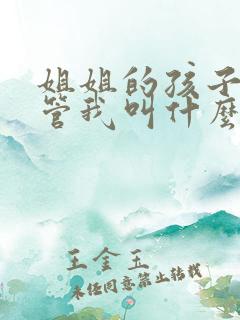 姐姐的孩子
管我叫什麼
王金玉
未经同意禁止转载